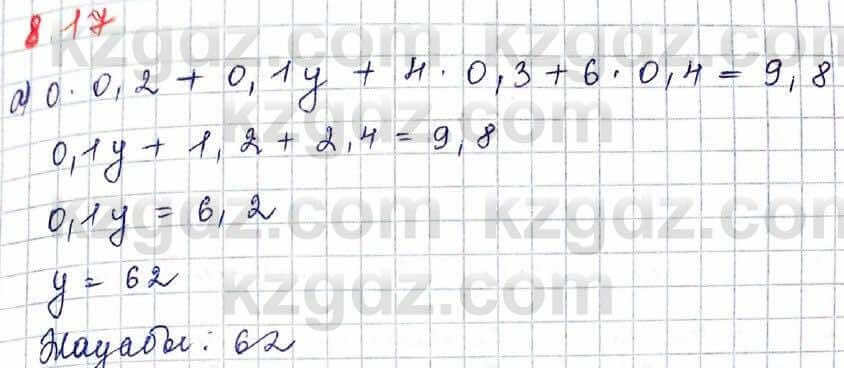 8.17
kzgdz.com kzgdz.com
а) 0 · 0,2 + 0,1y + 4 · 0,3 + 6 · 0,4 = 9,8
kzgdz.com
0,1y + 1,2 + 2,4 = 9,8
kzgdz.com kzgdz.com
0,1y = 6,2
y = 62
kzgdz.com
Жауабы: 62